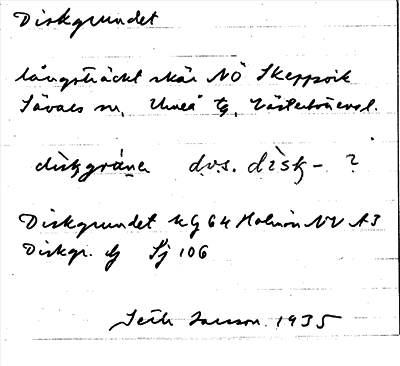 Diskgrundet
långsträckt skär NÖ Skeppsvik
Sävars sn, Umeå tg, Västerbotens l.
diskgrúna d.v.s. disk- ?
Diskgrundet kg 64 Holmön NV A3
Diskgr. Sj 106
Seth Larsson. 1935